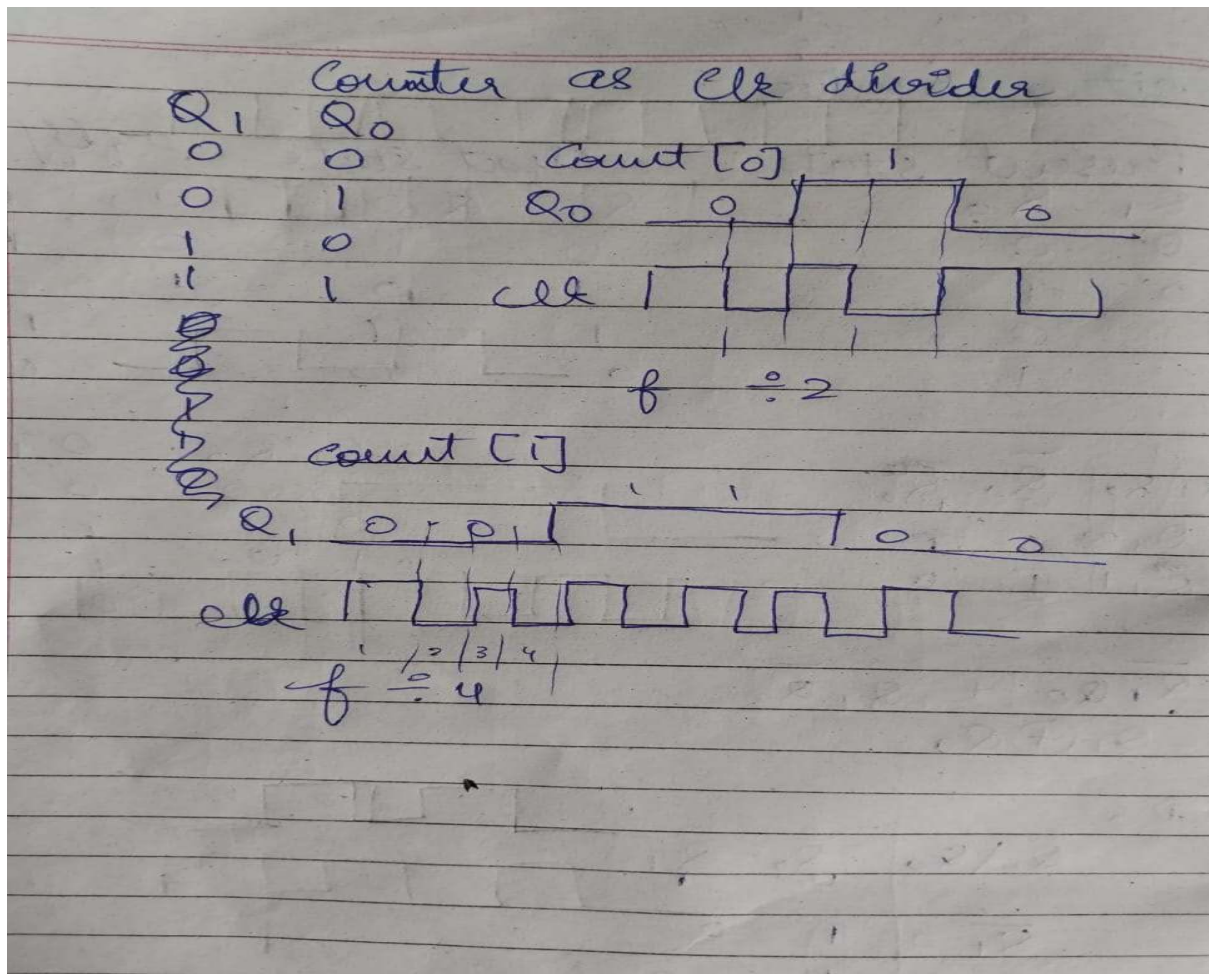 Counter as clk divider
Q1 Q0
0 0
0 1
1 0
1 1
Count [0]
1
Q0 0 0
clk
f ÷ 2
count [1]
1 1
Q1 0 0 0 0
clk
1 2 3 4
f ÷ 4